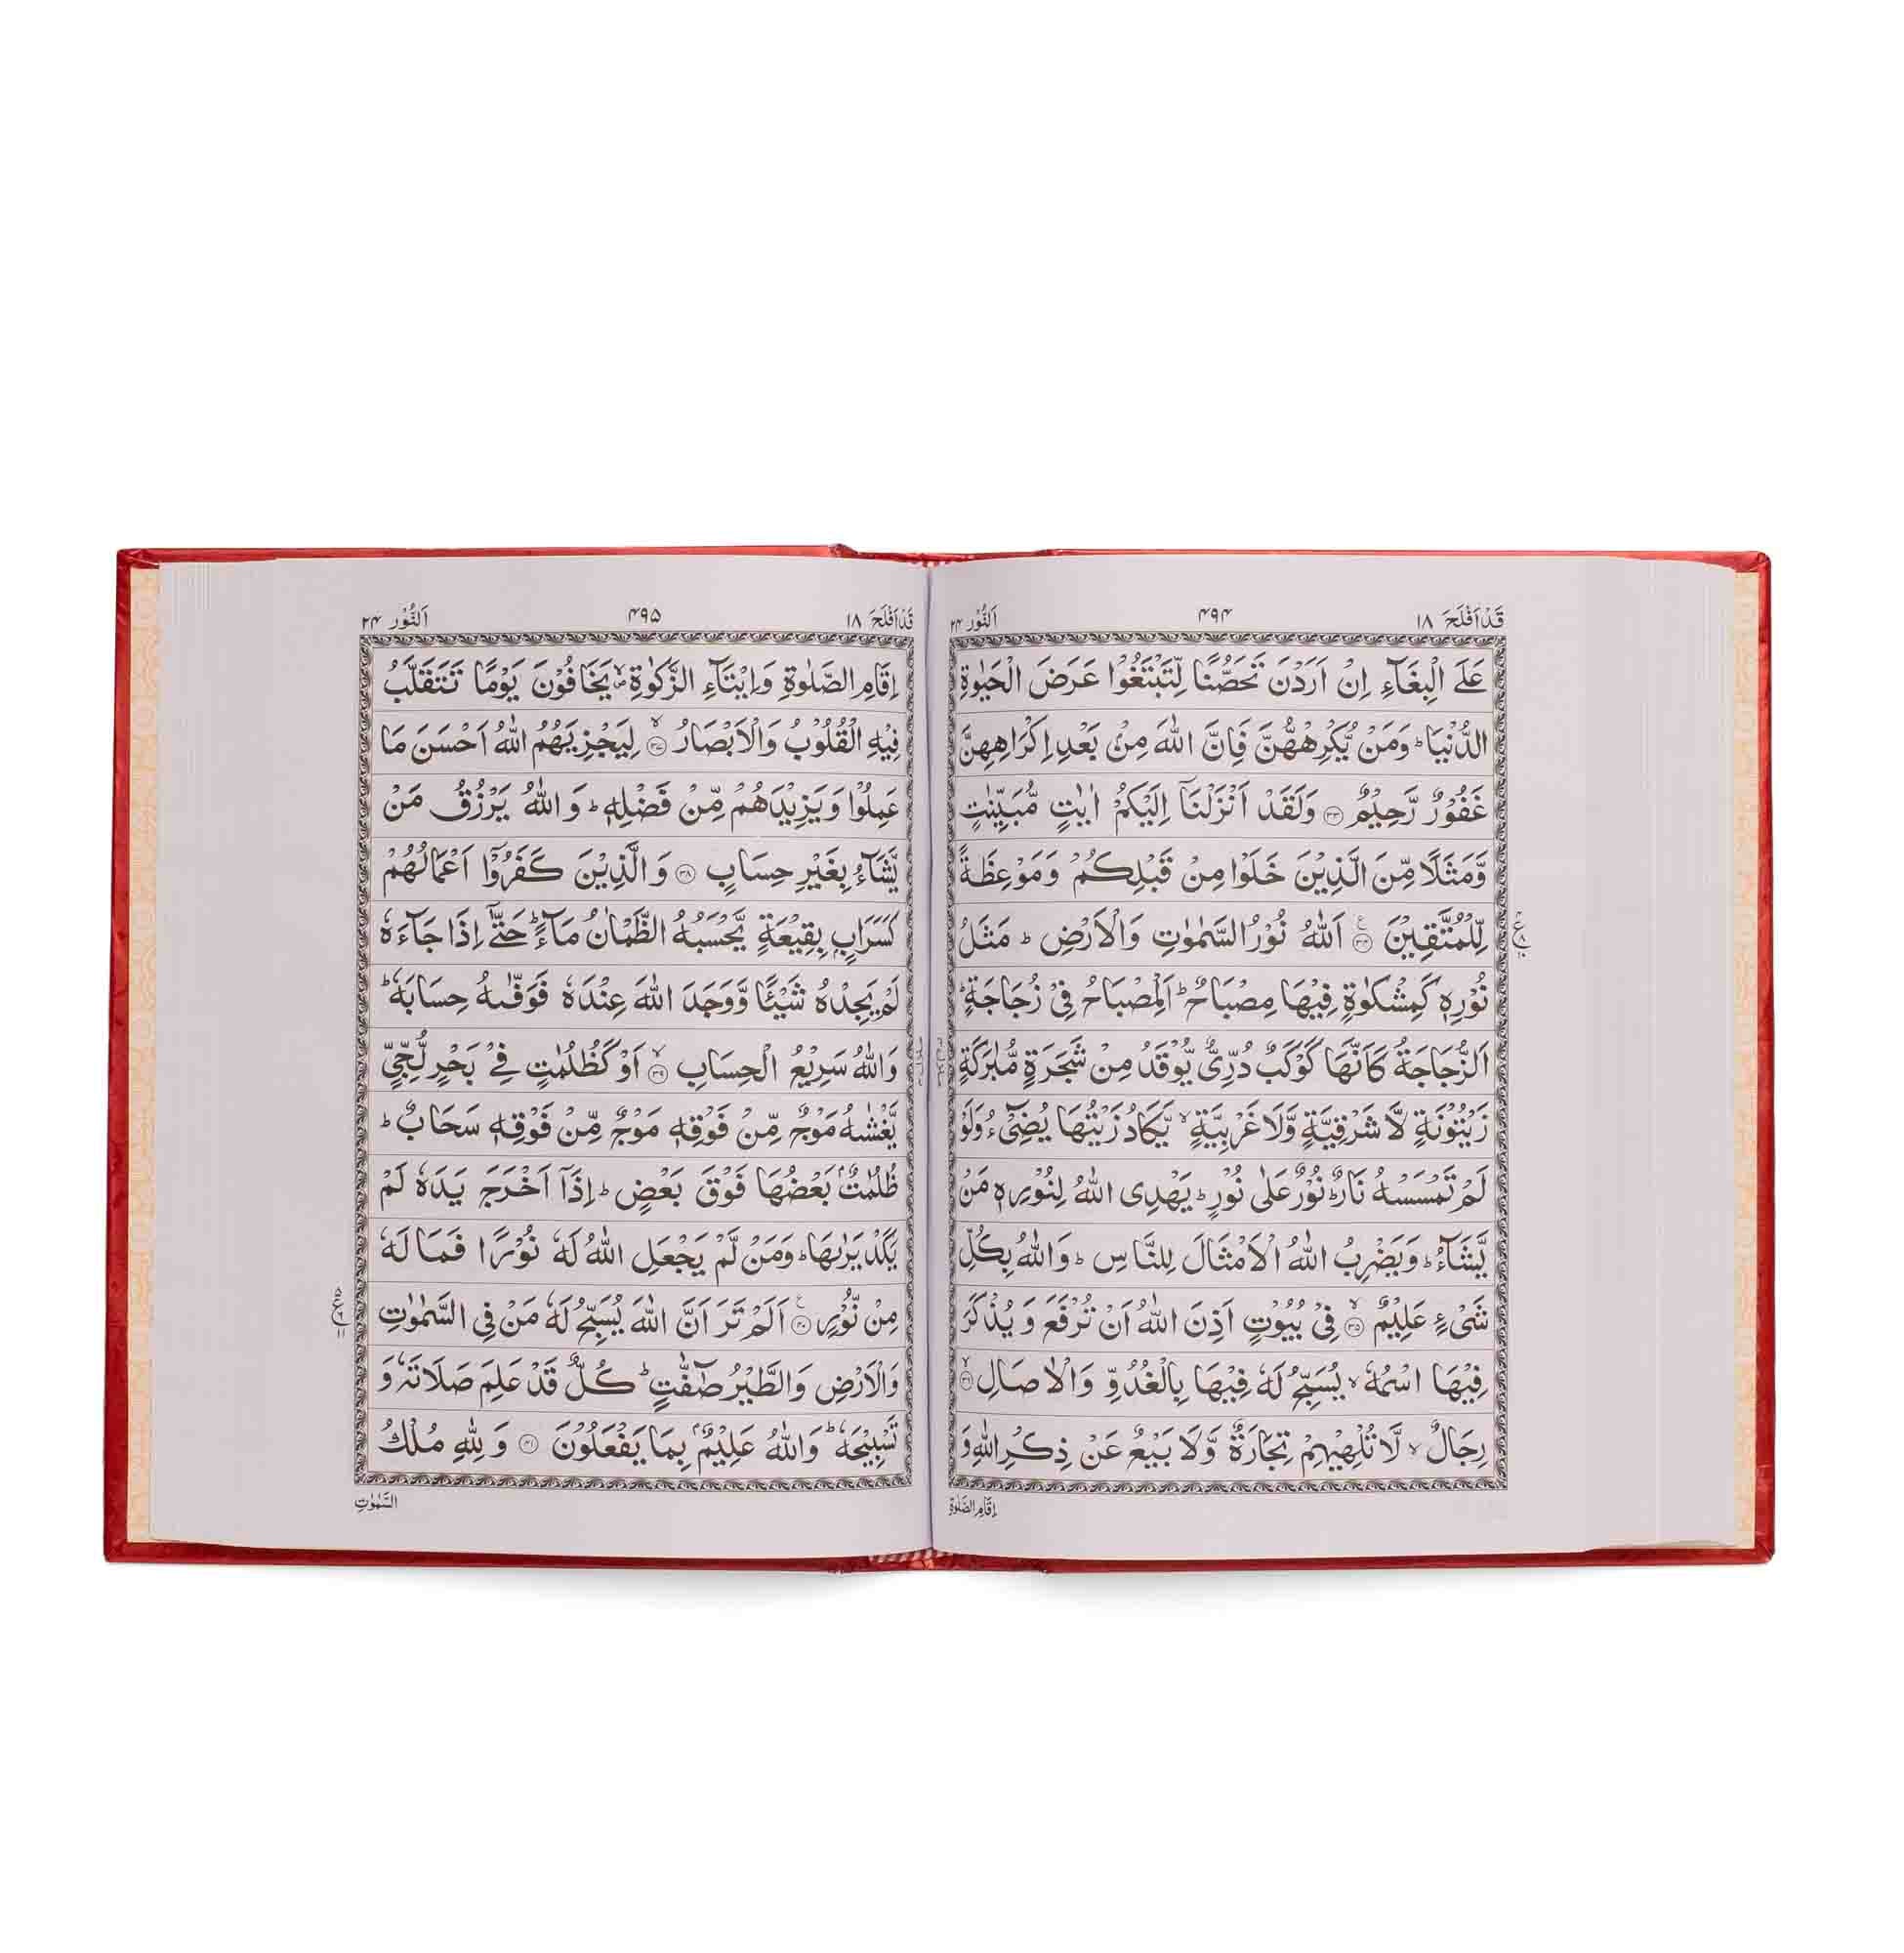 قَدۡ اَفۡلَحَ ۱۸
۴۹۴
اَلنُّوۡر ۲۴
عَلَى الۡبِغَآءِ اِنۡ اَرَدۡنَ تَحَصُّنًا لِّتَبۡتَغُوۡا عَرَضَ الۡحَيٰوةِ
الدُّنۡيَا ؕ وَمَنۡ يُّكۡرِهْهُّنَّ فَاِنَّ اللّٰهَ مِنۡۢ بَعۡدِ اِكۡرَاهِهِنَّ
غَفُوۡرٌ رَّحِيۡمٌ ﴿۳۳﴾ وَلَقَدۡ اَنۡزَلۡنَاۤ اِلَيۡكُمۡ اٰيٰتٍ مُّبَيِّنٰتٍ
وَّمَثَلًا مِّنَ الَّذِيۡنَ خَلَوۡا مِنۡ قَبۡلِكُمۡ وَمَوۡعِظَةً
لِّلۡمُتَّقِيۡنَ ﴿۳۴﴾ اَللّٰهُ نُوۡرُ السَّمٰوٰتِ وَالۡاَرۡضِ ؕ مَثَلُ
نُوۡرِهٖ كَمِشۡكٰوةٍ فِيۡهَا مِصۡبَاحٌ ؕ اَلۡمِصۡبَاحُ فِىۡ زُجَاجَةٍ ؕ
اَلزُّجَاجَةُ كَاَنَّهَا كَوۡكَبٌ دُرِّىٌّ يُّوۡقَدُ مِنۡ شَجَرَةٍ مُّبٰرَكَةٍ
زَيۡتُوۡنَةٍ لَّا شَرۡقِيَّةٍ وَّلَا غَرۡبِيَّةٍ ۙ يَّكَادُ زَيۡتُهَا يُضِىۡٓءُ وَلَوۡ
لَمۡ تَمۡسَسۡهُ نَارٌ ؕ نُوۡرٌ عَلٰى نُوۡرٍ ؕ يَهۡدِى اللّٰهُ لِنُوۡرِهٖ مَنۡ
يَّشَآءُ ؕ وَيَضۡرِبُ اللّٰهُ الۡاَمۡثَالَ لِلنَّاسِ ؕ وَاللّٰهُ بِكُلِّ
شَىۡءٍ عَلِيۡمٌ ۙ﴿۳۵﴾ فِىۡ بُيُوۡتٍ اَذِنَ اللّٰهُ اَنۡ تُرۡفَعَ وَيُذۡكَرَ
فِيۡهَا اسۡمُهٗ ۙ يُسَبِّحُ لَهٗ فِيۡهَا بِالۡغُدُوِّ وَالۡاٰصَالِ ۙ﴿۳۶﴾
رِجَالٌ ۙ لَّا تُلۡهِيۡهِمۡ تِجَارَةٌ وَّلَا بَيۡعٌ عَنۡ ذِكۡرِ اللّٰهِ وَ
اِقَامِ الصَّلٰوةِ
قَدۡ اَفۡلَحَ ۱۸
۴۹۵
اَلنُّوۡر ۲۴
اِقَامِ الصَّلٰوةِ وَاِيۡتَآءِ الزَّكٰوةِ ۙ يَخَافُوۡنَ يَوۡمًا تَتَقَلَّبُ
فِيۡهِ الۡقُلُوۡبُ وَالۡاَبۡصَارُ ۙ﴿۳۷﴾ لِيَجۡزِيَهُمُ اللّٰهُ اَحۡسَنَ مَا
عَمِلُوۡا وَيَزِيۡدَهُمۡ مِّنۡ فَضۡلِهٖ ؕ وَاللّٰهُ يَرۡزُقُ مَنۡ
يَّشَآءُ بِغَيۡرِ حِسَابٍ ﴿۳۸﴾ وَالَّذِيۡنَ كَفَرُوۡۤا اَعۡمَالُهُمۡ
كَسَرَابٍۢ بِقِيۡعَةٍ يَّحۡسَبُهُ الظَّمۡاٰنُ مَآءً ؕ حَتّٰۤى اِذَا جَآءَهٗ
لَمۡ يَجِدۡهُ شَيۡـًٔا وَّوَجَدَ اللّٰهَ عِنۡدَهٗ فَوَفّٰٮهُ حِسَابَهٗ ؕ
وَاللّٰهُ سَرِيۡعُ الۡحِسَابِ ۙ﴿۳۹﴾ اَوۡ كَظُلُمٰتٍ فِىۡ بَحۡرٍ لُّجِّىٍّ
يَّغۡشٰٮهُ مَوۡجٌ مِّنۡ فَوۡقِهٖ مَوۡجٌ مِّنۡ فَوۡقِهٖ سَحَابٌ ؕ
ظُلُمٰتٌۢ بَعۡضُهَا فَوۡقَ بَعۡضٍ ؕ اِذَاۤ اَخۡرَجَ يَدَهٗ لَمۡ
يَكَدۡ يَرٰٮهَا ؕ وَمَنۡ لَّمۡ يَجۡعَلِ اللّٰهُ لَهٗ نُوۡرًا فَمَا لَهٗ
مِنۡ نُّوۡرٍ ﴿۴۰﴾ اَلَمۡ تَرَ اَنَّ اللّٰهَ يُسَبِّحُ لَهٗ مَنۡ فِى السَّمٰوٰتِ
وَالۡاَرۡضِ وَالطَّيۡرُ صٰٓفّٰتٍ ؕ كُلٌّ قَدۡ عَلِمَ صَلَاتَهٗ وَ
تَسۡبِيۡحَهٗ ؕ وَاللّٰهُ عَلِيۡمٌۢ بِمَا يَفۡعَلُوۡنَ ﴿۴۱﴾ وَلِلّٰهِ مُلۡكُ
السَّمٰوٰتِ